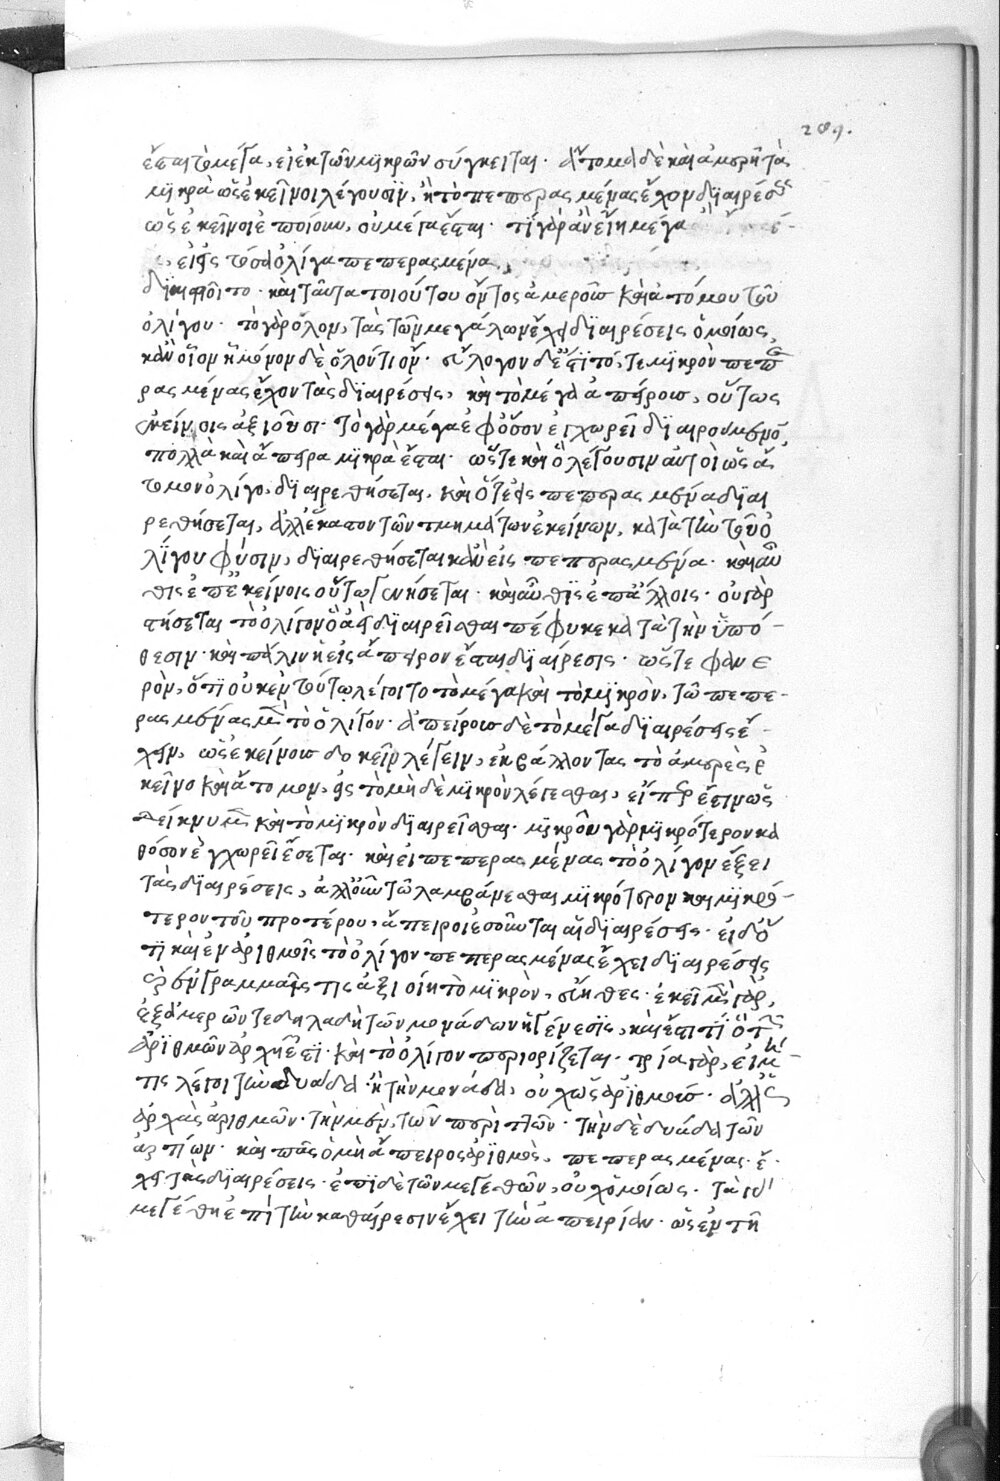 289.
ἔσται τὸ μέγα, εἰ ἐκ τῶν μικρῶν σύγκειται· ἄτομα δὲ καὶ ἀμερῆ τὰ
μικρὰ ὡς ἐκεῖνοι λέγουσιν, ἢ τὸ πεπερασμένας ἔχον διαιρέσεις
ὡς ἐκεῖνοι ἐποίουν, οὐ μέγα ἔσται· τί γὰρ ἂν εἴη μέγα
εἰς τόσα ὀλίγα πεπερασμένα
διαιροῖτο· καὶ ταῦτα τοιούτου ὄντος ἀμεροῦς καὶ ἀτόμου τοῦ
ὀλίγου· τὸ γὰρ ὅλον, τὰς τῶν μεγάλων ἔχει διαιρέσεις ὁμοίως,
κἂν οἷον ἡνωμένον δὲ ὅλον τι ὂν· εὔλογον δὲ ἐστὶ τό, τε μικρὸν πεπε
ρασμένας ἔχον τὰς διαιρέσεις, καὶ τὸ μέγα ἀπείρους, οὕτως
ἐκείνοις ἀξιοῦσι· τὸ γὰρ μέγα ἐφ' ὅσον ἐγχωρεῖ διαιρούμενον,
πολλὰ καὶ ἄπειρα μικρὰ ἔσται· ὥστε καὶ ὃ λέγουσιν αὐτοὶ ὡς εἰς
τὸ μὲν ὀλίγον, διαιρεθήσεται, καὶ ὅτε εἰς πεπερασμένα διαι
ρεθήσεται, ἀλλ' ἕκαστον τῶν τμημάτων ἐκείνων, κατὰ τὴν τοῦ ὀ
λίγου φύσιν, διαιρεθήσεται κἂν εἰς πεπερασμένα· καὶ αὖ
θις ἐπ' ἐκείνοις οὕτω γενήσεται· καὶ αὖθις ἐπ' ἄλλοις· οὐ γὰρ
στήσεται τὸ ὀλίγον ὃ ἀεὶ διαιρεῖσθαι πέφυκε κατὰ τὴν ὑπό-
θεσιν· καὶ πάλιν ἡ εἰς ἄπειρον ἔσται διαίρεσις· ὥστε φανε
ρὸν, ὅτι οὐκ ἐν τούτῳ λέγοιτο τὸ μέγα καὶ τὸ μικρὸν, τῷ πεπε-
ρασμένας μὲν τὸ ὀλίγον· ἀπείρους δὲ τὸ μέγα διαιρέσεις ἔ-
χειν, ὡς ἐκείνοις δοκεῖν λέγειν, ἐκβάλλοντας τὸ ἀμερὲς ἐ
κεῖνο καὶ ἄτομον, εἰς τὸ μηδὲ μικρὸν λέγεσθαι, εἴπερ ἔστιν ὡς
δείκνυμεν καὶ τὸ μικρὸν διαιρεῖσθαι· μικροῦ γὰρ μικρότερον κα
θόσον ἐγχωρεῖ ἔσεται· καὶ εἰ πεπερασμένας τὸ ὀλίγον ἕξει
τὰς διαιρέσεις, ἀλλ' οὖν τῷ λαμβάνεσθαι μικρότερον καὶ μικρό-
τερον τοῦ προτέρου, ἄπειροι ἔσονται αἱ διαιρέσεις· εἰ δ' ὅ
τι καὶ ἐν ἀριθμοῖς τὸ ὀλίγον πεπερασμένας ἔχει διαιρέσεις
ἐν γραμμαῖς τις ἀξιοίη τὸ μικρὸν, εὔηθες· ἐκεῖ μὲν γὰρ,
ἐξ ἀμερῶν τε δηλαδὴ τῶν μονάδων ἡ γένεσις, καὶ ἔστι τί ὅ τῶν
ἀριθμῶν ἀρχή ἐστι· καὶ τὸ ὀλίγον περιορίζεται· τρία γὰρ, εἰ μή
τις λέγοι τὴν δυάδα ἢ τὴν μονάδα, οὐχ ὡς ἀριθμούς· ἀλλ' ὡς
ἀρχὰς ἀριθμῶν· τὴν μὲν, τῶν περιττῶν· τὴν δὲ δυάδα τῶν
ἀρτίων· καὶ πᾶς ὁ μὴ ἄπειρος ἀριθμὸς, πεπερασμένας ἔ-
χει τὰς διαιρέσεις· ἐπὶ δὲ τῶν μεγεθῶν, οὐχ ὁμοίως· τὰ γὰρ
μεγέθη ἐπὶ τὴν καθαίρεσιν ἔχει τὴν ἀπειρίαν· ὡς ἐν τῇ